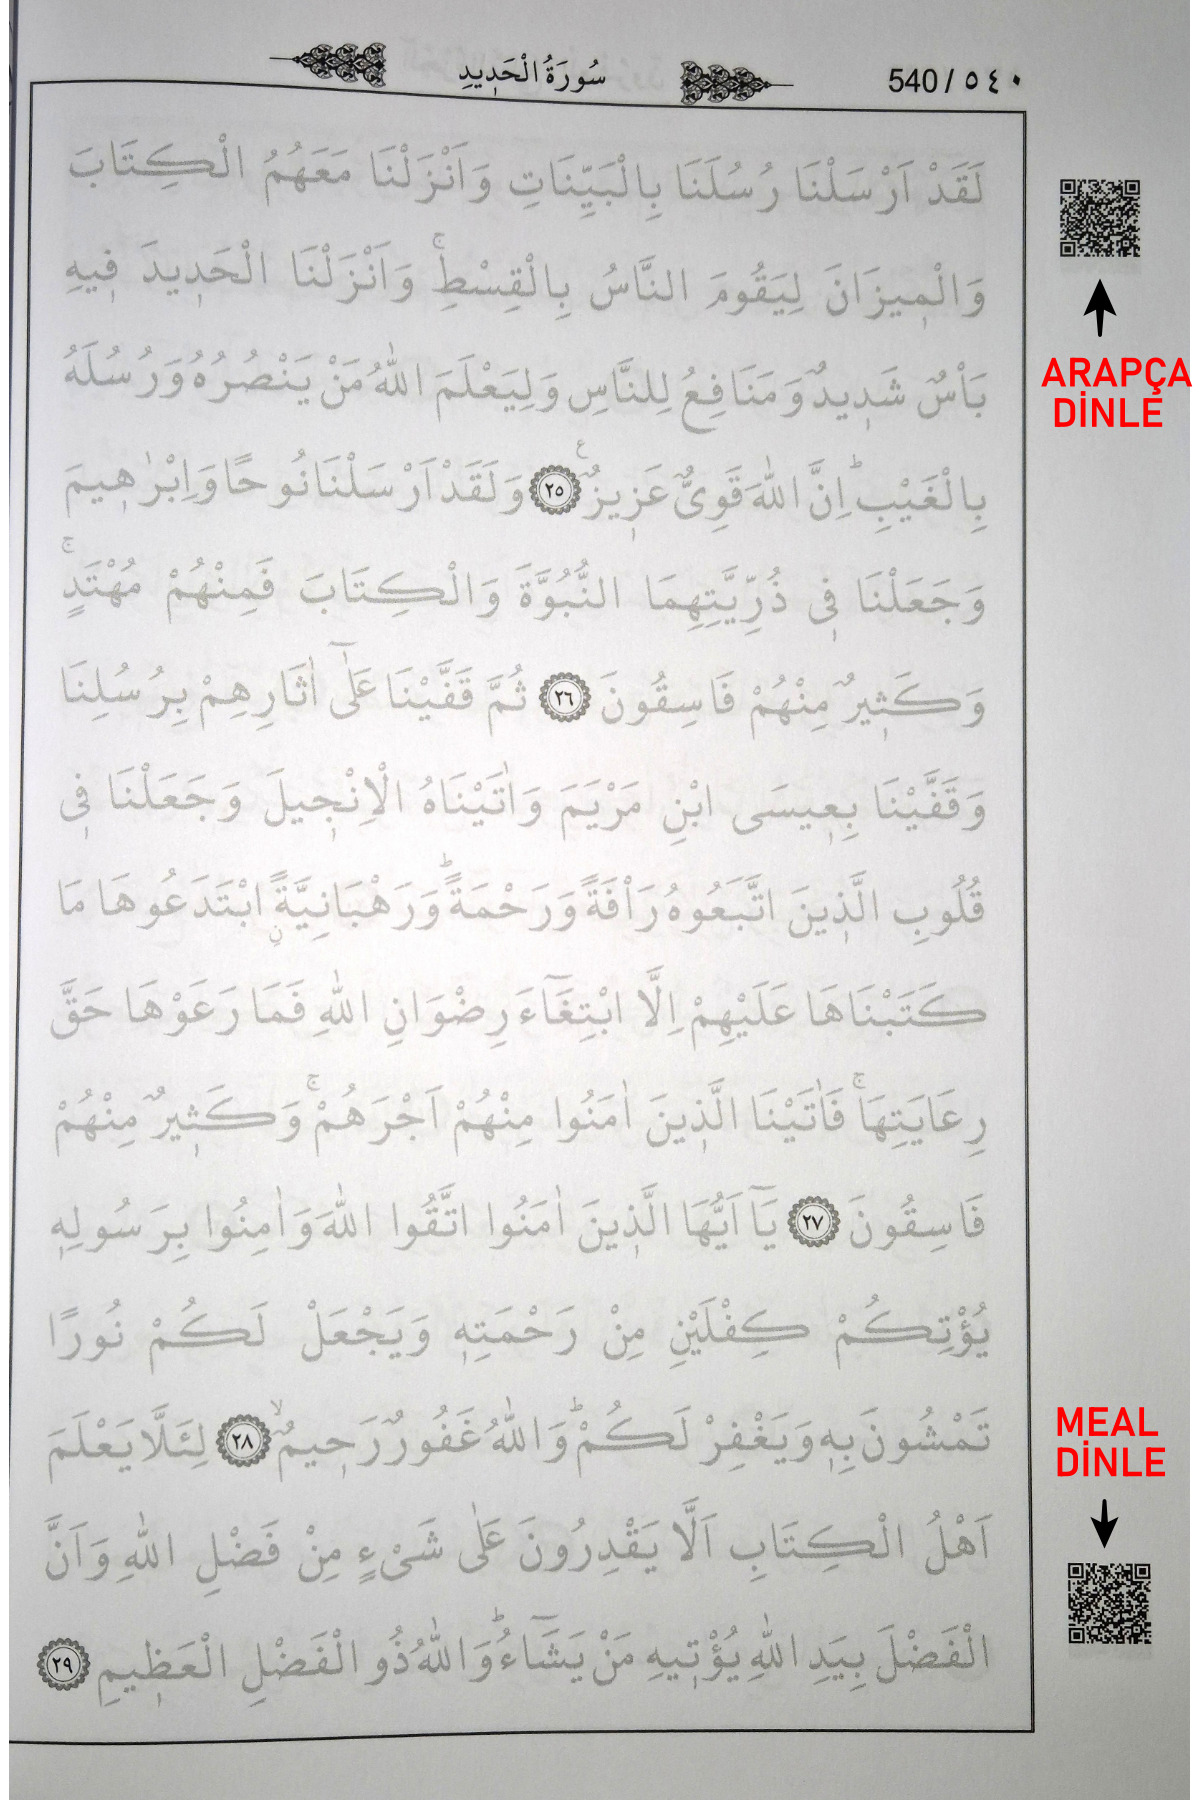 540 / ٥٤٠
سُورَةُ الْحَد۪يدِ
لَقَدْ اَرْسَلْنَا رُسُلَنَا بِالْبَيِّنَاتِ وَاَنْزَلْنَا مَعَهُمُ الْكِتَابَ
وَالْم۪يزَانَ لِيَقُومَ النَّاسُ بِالْقِسْطِۚ وَاَنْزَلْنَا الْحَد۪يدَ ف۪يهِ
بَاْسٌ شَد۪يدٌ وَمَنَافِعُ لِلنَّاسِ وَلِيَعْلَمَ اللّٰهُ مَنْ يَنْصُرُهُ وَرُسُلَهُ
بِالْغَيْبِۜ اِنَّ اللّٰهَ قَوِيٌّ عَز۪يزٌ۟ ﴿٢٥﴾ وَلَقَدْ اَرْسَلْنَا نُوحًا وَاِبْرٰه۪يمَ
وَجَعَلْنَا ف۪ي ذُرِّيَّتِهِمَا النُّبُوَّةَ وَالْكِتَابَ فَمِنْهُمْ مُهْتَدٍۚ
وَكَث۪يرٌ مِنْهُمْ فَاسِقُونَ ﴿٢٦﴾ ثُمَّ قَفَّيْنَا عَلٰٓى اٰثَارِهِمْ بِرُسُلِنَا
وَقَفَّيْنَا بِع۪يسَى ابْنِ مَرْيَمَ وَاٰتَيْنَاهُ الْاِنْج۪يلَ وَجَعَلْنَا ف۪ي
قُلُوبِ الَّذ۪ينَ اتَّبَعُوهُ رَاْفَةً وَرَحْمَةًۜ وَرَهْبَانِيَّةًۨ ابْتَدَعُوهَا مَا
كَتَبْنَاهَا عَلَيْهِمْ اِلَّا ابْتِغَٓاءَ رِضْوَانِ اللّٰهِ فَمَا رَعَوْهَا حَقَّ
رِعَايَتِهَاۚ فَاٰتَيْنَا الَّذ۪ينَ اٰمَنُوا مِنْهُمْ اَجْرَهُمْۚ وَكَث۪يرٌ مِنْهُمْ
فَاسِقُونَ ﴿٢٧﴾ يَٓا اَيُّهَا الَّذ۪ينَ اٰمَنُوا اتَّقُوا اللّٰهَ وَاٰمِنُوا بِرَسُولِه۪
يُؤْتِكُمْ كِفْلَيْنِ مِنْ رَحْمَتِه۪ وَيَجْعَلْ لَكُمْ نُورًا
تَمْشُونَ بِه۪ وَيَغْفِرْ لَكُمْۜ وَاللّٰهُ غَفُورٌ رَح۪يمٌۙ ﴿٢٨﴾ لِئَلَّا يَعْلَمَ
اَهْلُ الْكِتَابِ اَلَّا يَقْدِرُونَ عَلٰى شَيْءٍ مِنْ فَضْلِ اللّٰهِ وَاَنَّ
الْفَضْلَ بِيَدِ اللّٰهِ يُؤْت۪يهِ مَنْ يَشَٓاءُۜ وَاللّٰهُ ذُو الْفَضْلِ الْعَظ۪يمِ ﴿٢٩﴾
ARAPÇA
DİNLE
MEAL
DİNLE